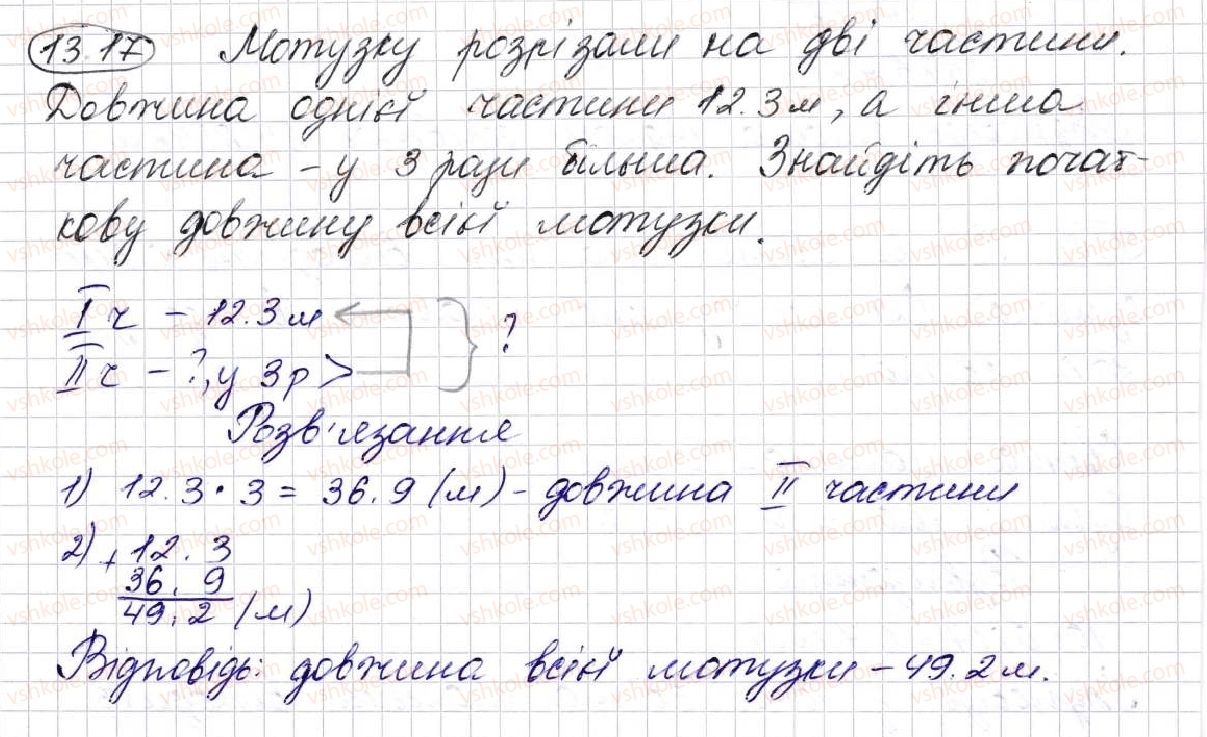 13.17 Мотузку розрізали на дві частини.
Довжина однієї частини 12.3 м, а інша
частина - у 3 рази більша. Знайдіть почат-
кову довжину всієї мотузки.
I ч - 12.3 м
?
II ч - ?, у 3 р >
Розв'язання
1) 12.3 • 3 = 36.9 (м) - довжина II частини
2) + 12.3
36.9
49.2 (м)
Відповідь: довжина всієї мотузки - 49.2 м.